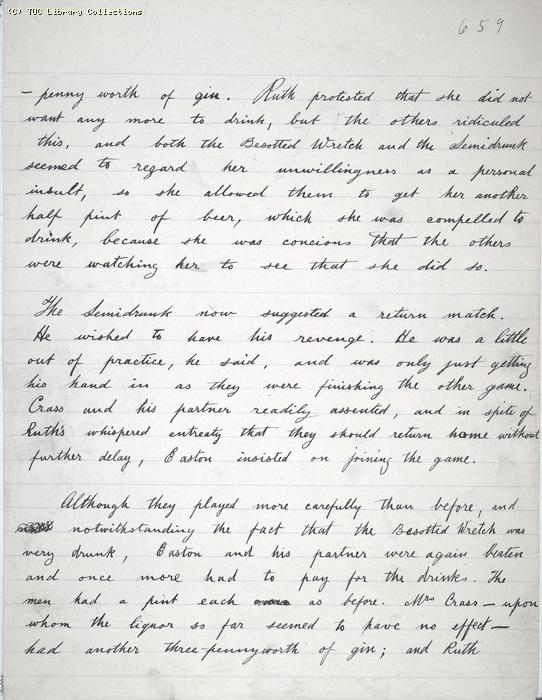 (C) TUC Library Collections
659
- penny worth of gin. Ruth protested that she did not
want any more to drink, but the others ridiculed
this, and both the Besotted Wretch and the Semidrunk
seemed to regard her unwillingness as a personal
insult, so she allowed them to get her another
half pint of beer, which she was compelled to
drink, because she was concious that the others
were watching her to see that she did so.
The Semidrunk now suggested a return match.
He wished to have his revenge. He was a little
out of practice, he said, and was only just getting
his hand in as they were finishing the other game.
Crass and his partner readily assented, and in spite of
Ruth's whispered entreaty that they should return home without
further delay, Easton insisted on joining the game.
Although they played more carefully than before, and
notwithstanding the fact that the Besotted Wretch was
very drunk, Easton and his partner were again beaten
and once more had to pay for the drinks. The
men had a pint each as before. Mrs Crass - upon
whom the liquor so far seemed to have no effect -
had another three-pennyworth of gin; and Ruth